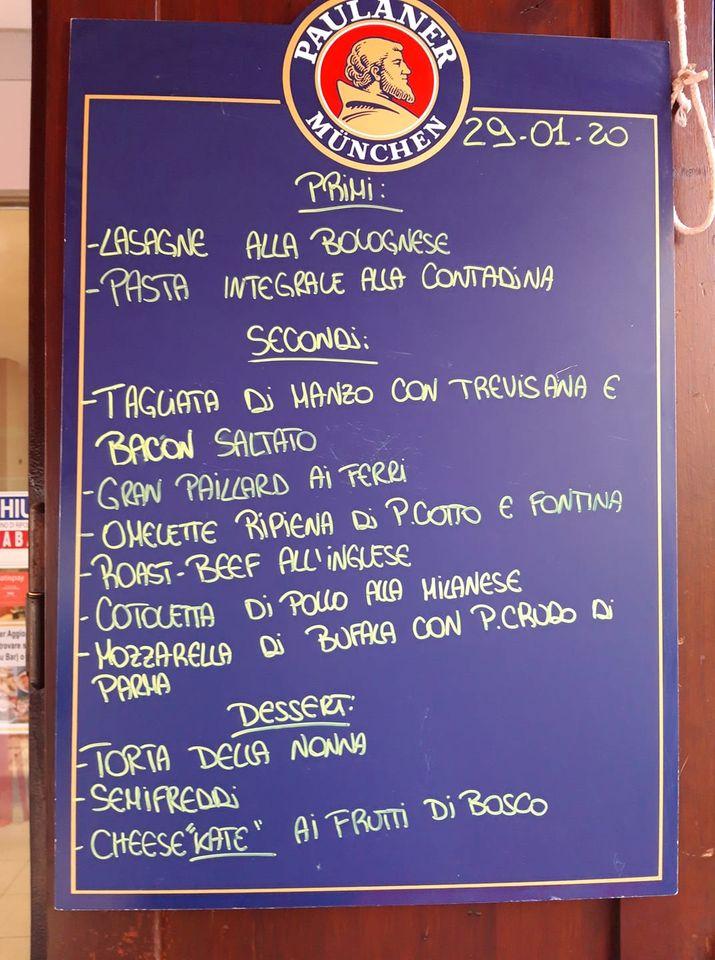 PAULANER
MÜNCHEN
29-01-20
PRIMI:
-LASAGNE ALLA BOLOGNESE
-PASTA INTEGRALE ALLA CONTADINA
SECONDI:
-TAGLIATA DI MANZO CON TREVISANA E
BACON SALTATO
-GRAN PAILLARD AI FERRI
-OMELETTE RIPIENA DI P.COTTO E FONTINA
-ROAST-BEEF ALL'INGLESE
-COTOLETTA DI POLLO ALLA MILANESE
-MOZZARELLA DI BUFALA CON P.CRUDO DI
PARMA
DESSERT:
-TORTA DELLA NONNA
-SEMIFREDDI
-CHEESE"KATE" AI FRUTTI DI BOSCO